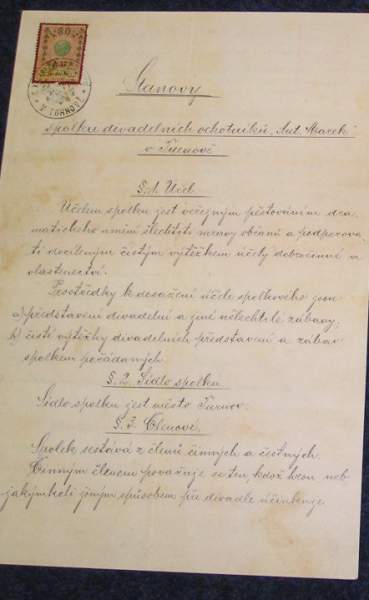 80
V TURNOVĚ
Stanovy
spolku divadelních ochotníků „Ant. Marek"
v Turnově
§. 1. Účel.
Účelem spolku jest veřejným pěstováním dra-
matického umění šlechtiti mravy občanů a podporova-
ti docíleným čistým výtěžkem účely dobročinné a
vlastenecké.
Prostředky k dosažení účele spolkového jsou
a) představení divadelní a jiné ušlechtilé zábavy;
b) čisté výtěžky divadelních představení a zábav
spolkem pořádaných.
§. 2. Sídlo spolku.
Sídlo spolku jest město Turnov.
§. 3. Členové.
Spolek sestává z členů činných a čestných.
Činným členem považuje se ten, kdož hrou neb
jakýmkoli jiným způsobem při divadle účinkuje